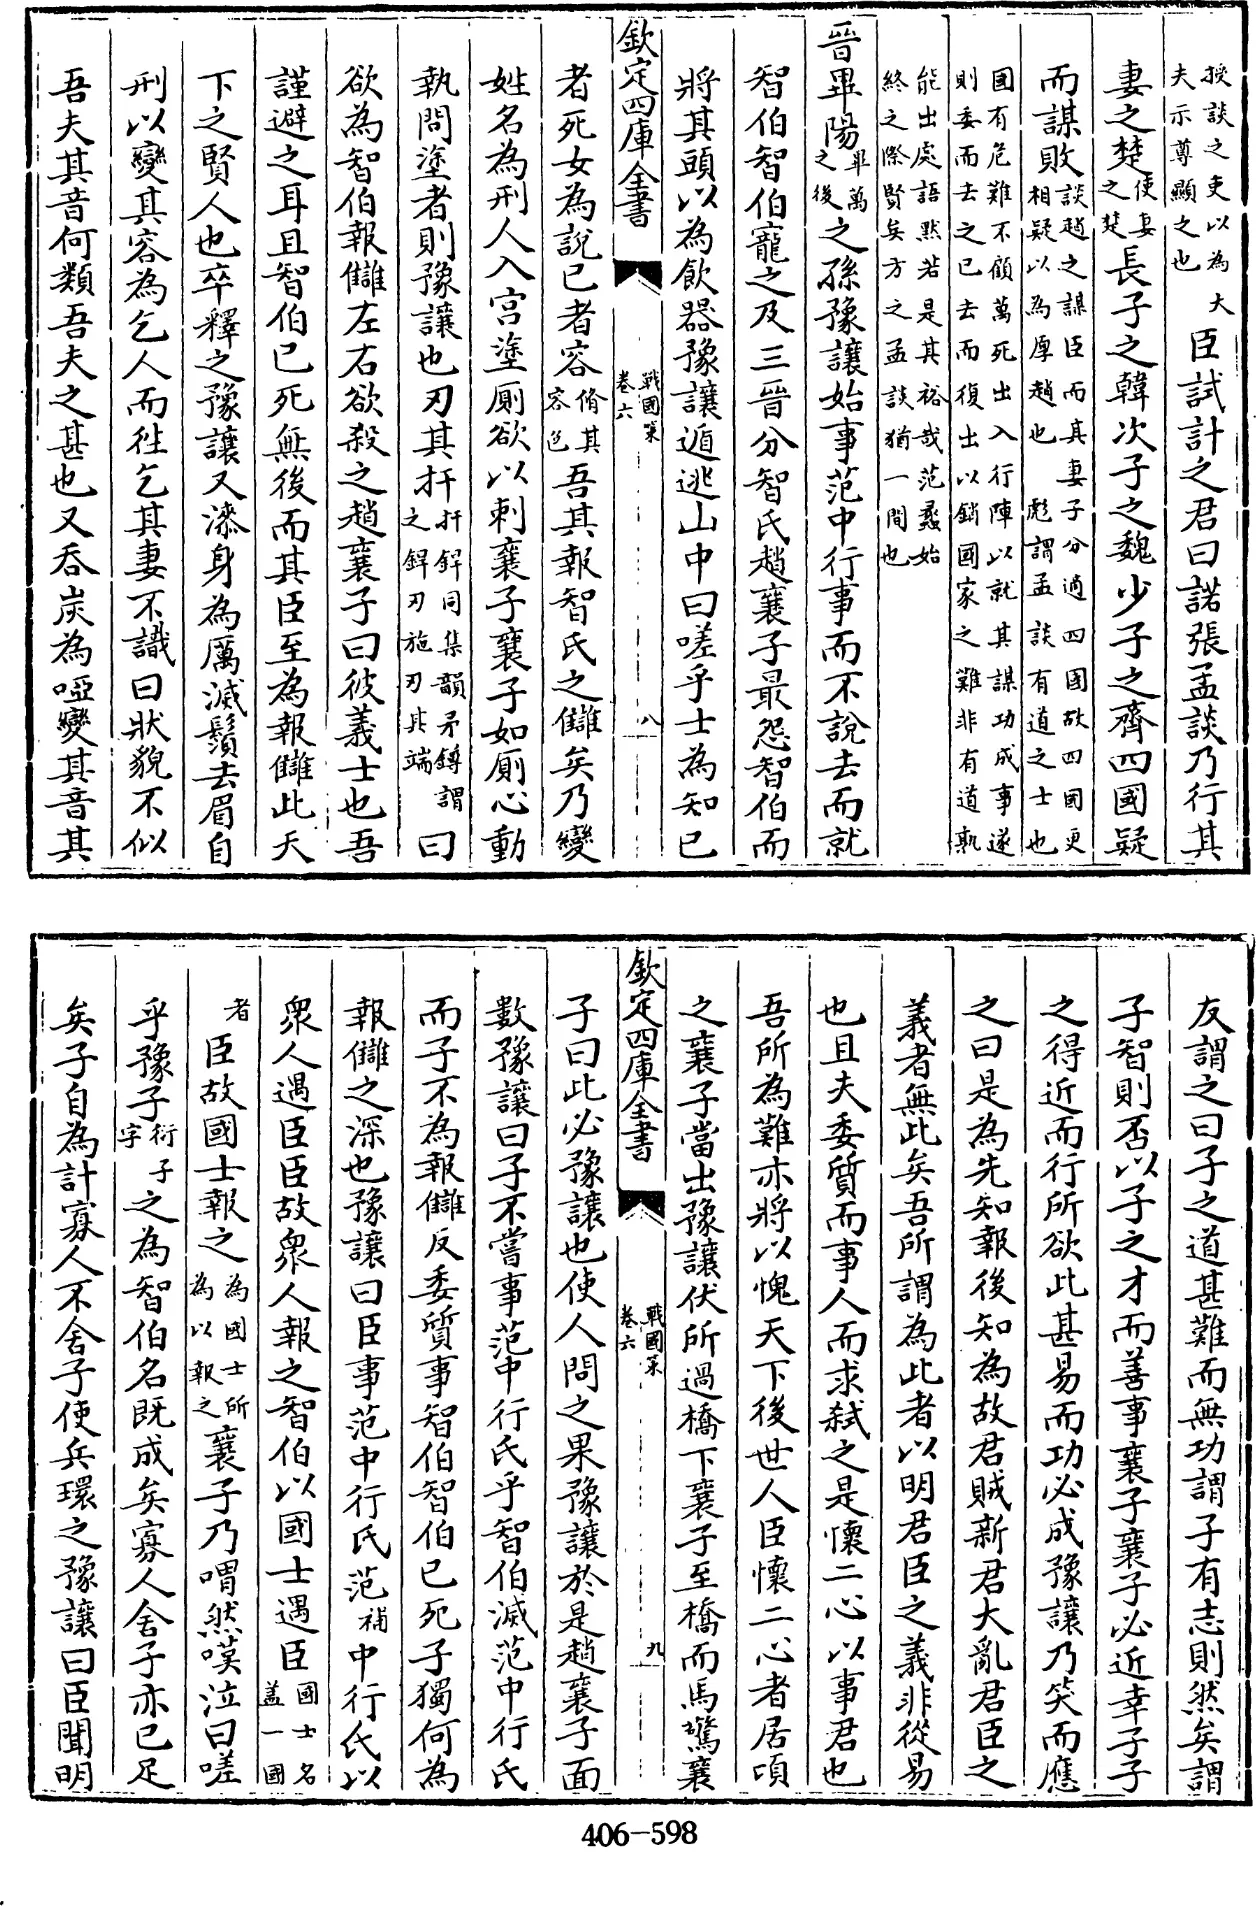 授談之吏以為大夫示尊顯之也臣試計之君曰諾張孟談乃行其
妻之楚使妻之楚長子之韓次子之魏少子之齊四國疑
而謀敗談趙之謀臣而其妻子分適四國故四國更相疑以為厚趙也 彪謂孟談有道之士也
國有危難不顧萬死出入行陣以就其謀功成事遂則委而去之已去而復出以銷國家之難非有道孰
能出處語黙若是其裕哉范蠡始終之際賢矣方之孟談猶一間也
晉畢陽畢萬之後之孫豫讓始事范中行事而不說去而就
智伯智伯寵之及三晉分智氏趙襄子最怨智伯而
將其頭以為飲器豫讓遁逃山中曰嗟乎士為知己
欽定四庫全書 戰國策 卷六 八
者死女為說己者容脩其容色吾其報智氏之讎矣乃變
姓名為刑人入宮塗厠欲以刺襄子襄子如厠心動
執問塗者則豫讓也刃其扞扞銲同集韻矛鐏謂之銲刃施刃其端曰
欲為智伯報讎左右欲殺之趙襄子曰彼義士也吾
謹避之耳且智伯已死無後而其臣至為報讎此天
下之賢人也卒釋之豫讓又漆身為厲滅鬚去眉自
刑以變其容為乞人而往乞其妻不識曰狀貌不似
吾夫其音何類吾夫之甚也又吞炭為啞變其音其
友謂之曰子之道甚難而無功謂子有志則然矣謂
子智則否以子之才而善事襄子襄子必近幸子子
之得近而行所欲此甚易而功必成豫讓乃笑而應
之曰是為先知報後知為故君賊新君大亂君臣之
義者無此矣吾所謂為此者以明君臣之義非從易
也且夫委質而事人而求弒之是懷二心以事君也
吾所為難亦將以愧天下後世人臣懷二心者居頃
之襄子當出豫讓伏所過橋下襄子至橋而馬驚襄
欽定四庫全書 戰國策 卷六 九
子曰此必豫讓也使人問之果豫讓於是趙襄子面
數豫讓曰子不嘗事范中行氏乎智伯滅范中行氏
而子不為報讎反委質事智伯智伯已死子獨何為
報讎之深也豫讓曰臣事范中行氏范補中行氏以
衆人遇臣臣故衆人報之智伯以國士遇臣國士名蓋一國
者臣故國士報之為國士所為以報之襄子乃喟然嘆泣曰嗟
乎豫子衍子字之為智伯名既成矣寡人舍子亦已足
矣子自為計寡人不舍子使兵環之豫讓曰臣聞明
406-598